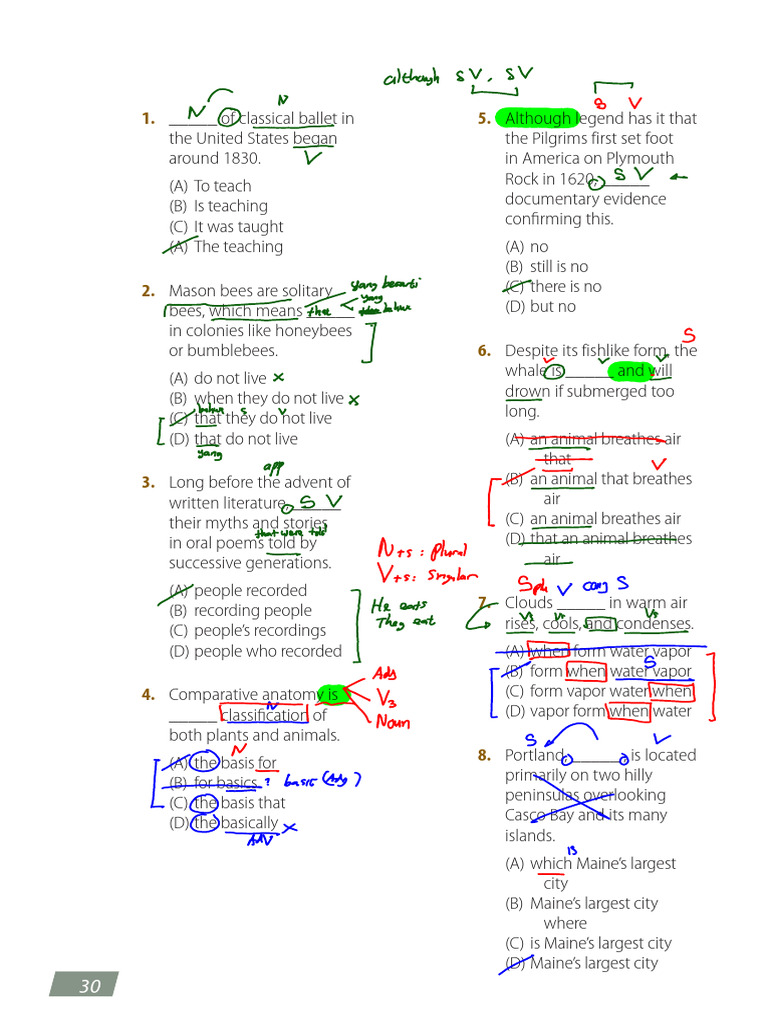 although S V, S V
N
N
1. ______ of classical ballet in
the United States began
around 1830.
V
(A) To teach
(B) Is teaching
(C) It was taught
(A) The teaching
2. Mason bees are solitary
yang berarti
bees, which means ______
the
yang
bahwa
in colonies like honeybees
or bumblebees.
(A) do not live x
(B) when they do not live x
bahwa s v
(C) that they do not live
(D) that do not live
yang
app
3. Long before the advent of
written literature, ______
S V
their myths and stories
that were told
in oral poems told by
successive generations.
(A) people recorded
(B) recording people
(C) people's recordings
(D) people who recorded
He eats
They eat
N+s : plural
V+s : singular
4. Comparative anatomy is
Adj
V3
Noun
N
______ classification of
both plants and animals.
N
(A) the basis for
(B) for basics ? basis (Adj)
(C) the basis that
(D) the basically x
Adv
S V
5. Although legend has it that
the Pilgrims first set foot
in America on Plymouth
Rock in 1620, ______
S V
documentary evidence
confirming this.
(A) no
(B) still is no
(C) there is no
(D) but no
S
6. Despite its fishlike form, the
v v v
whale is ______ and will
drown if submerged too
long.
(A) an animal breathes air
that
V
(B) an animal that breathes
air
(C) an animal breathes air
(D) that an animal breathes
air
S plu V conj S
7. Clouds ______ in warm air
Vs Vs Vs
rises, cools, and condenses.
(A) when form water vapor
S
(B) form when water vapor
(C) form vapor water when
(D) vapor form when water
S V
8. Portland, ______, is located
primarily on two hilly
peninsulas overlooking
Casco Bay and its many
islands.
is
(A) which Maine's largest
city
(B) Maine's largest city
where
(C) is Maine's largest city
(D) Maine's largest city
30